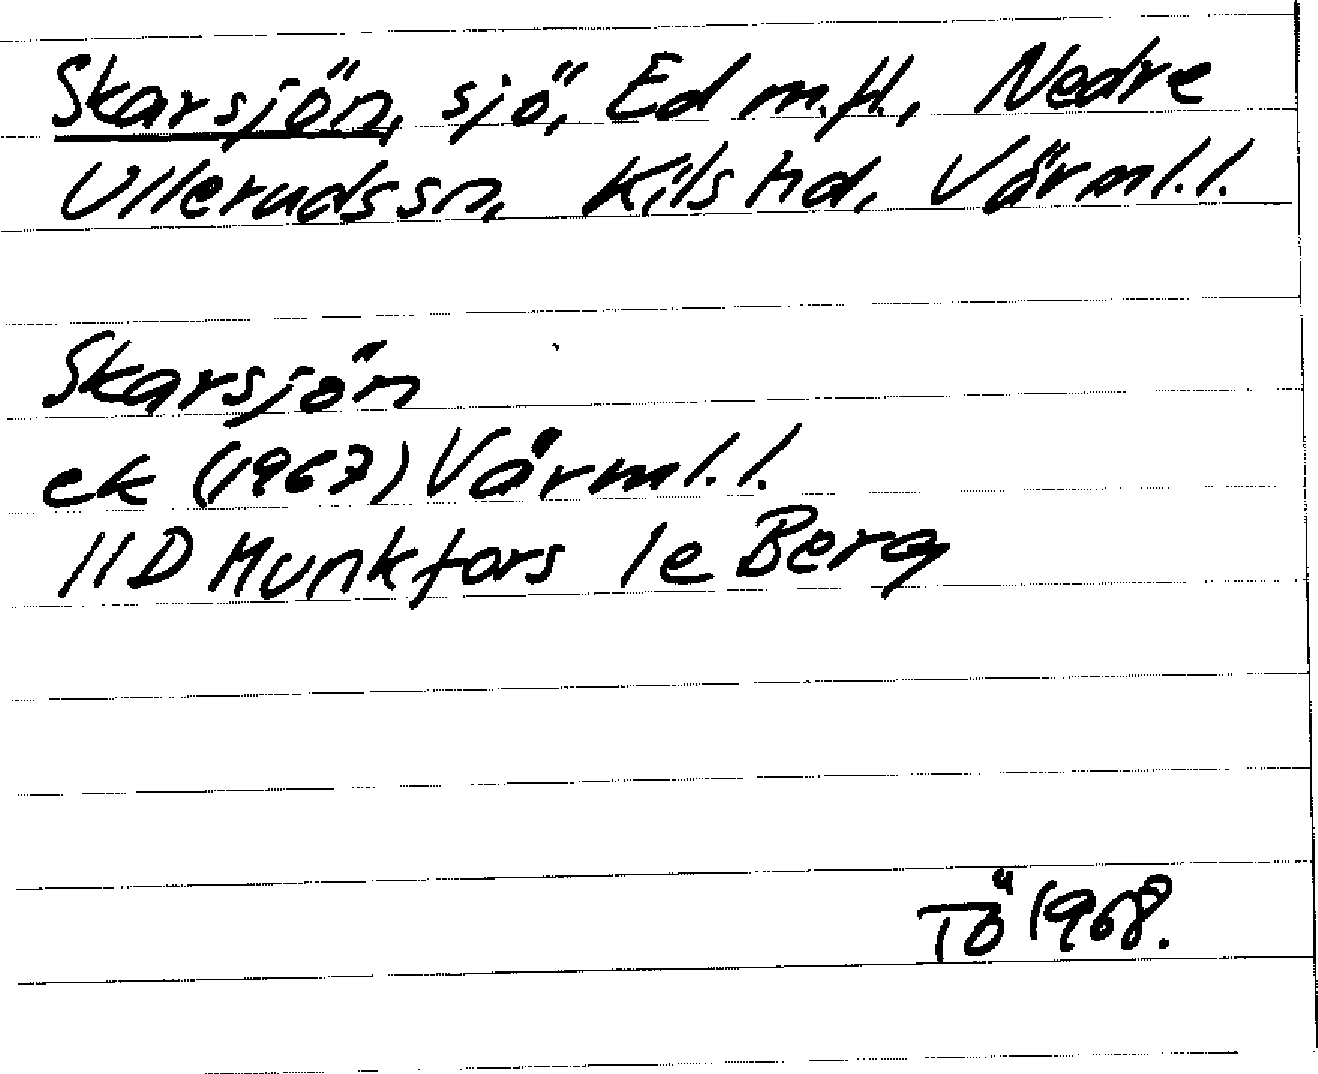 Skarsjön, sjö, Ed m.fl., Nedre
Ulleruds sn, Kils hd, Värml.l.
Skarsjön
ek (1967) Värml.l.
11D Munkfors 1e Berg
TÖ 1968.